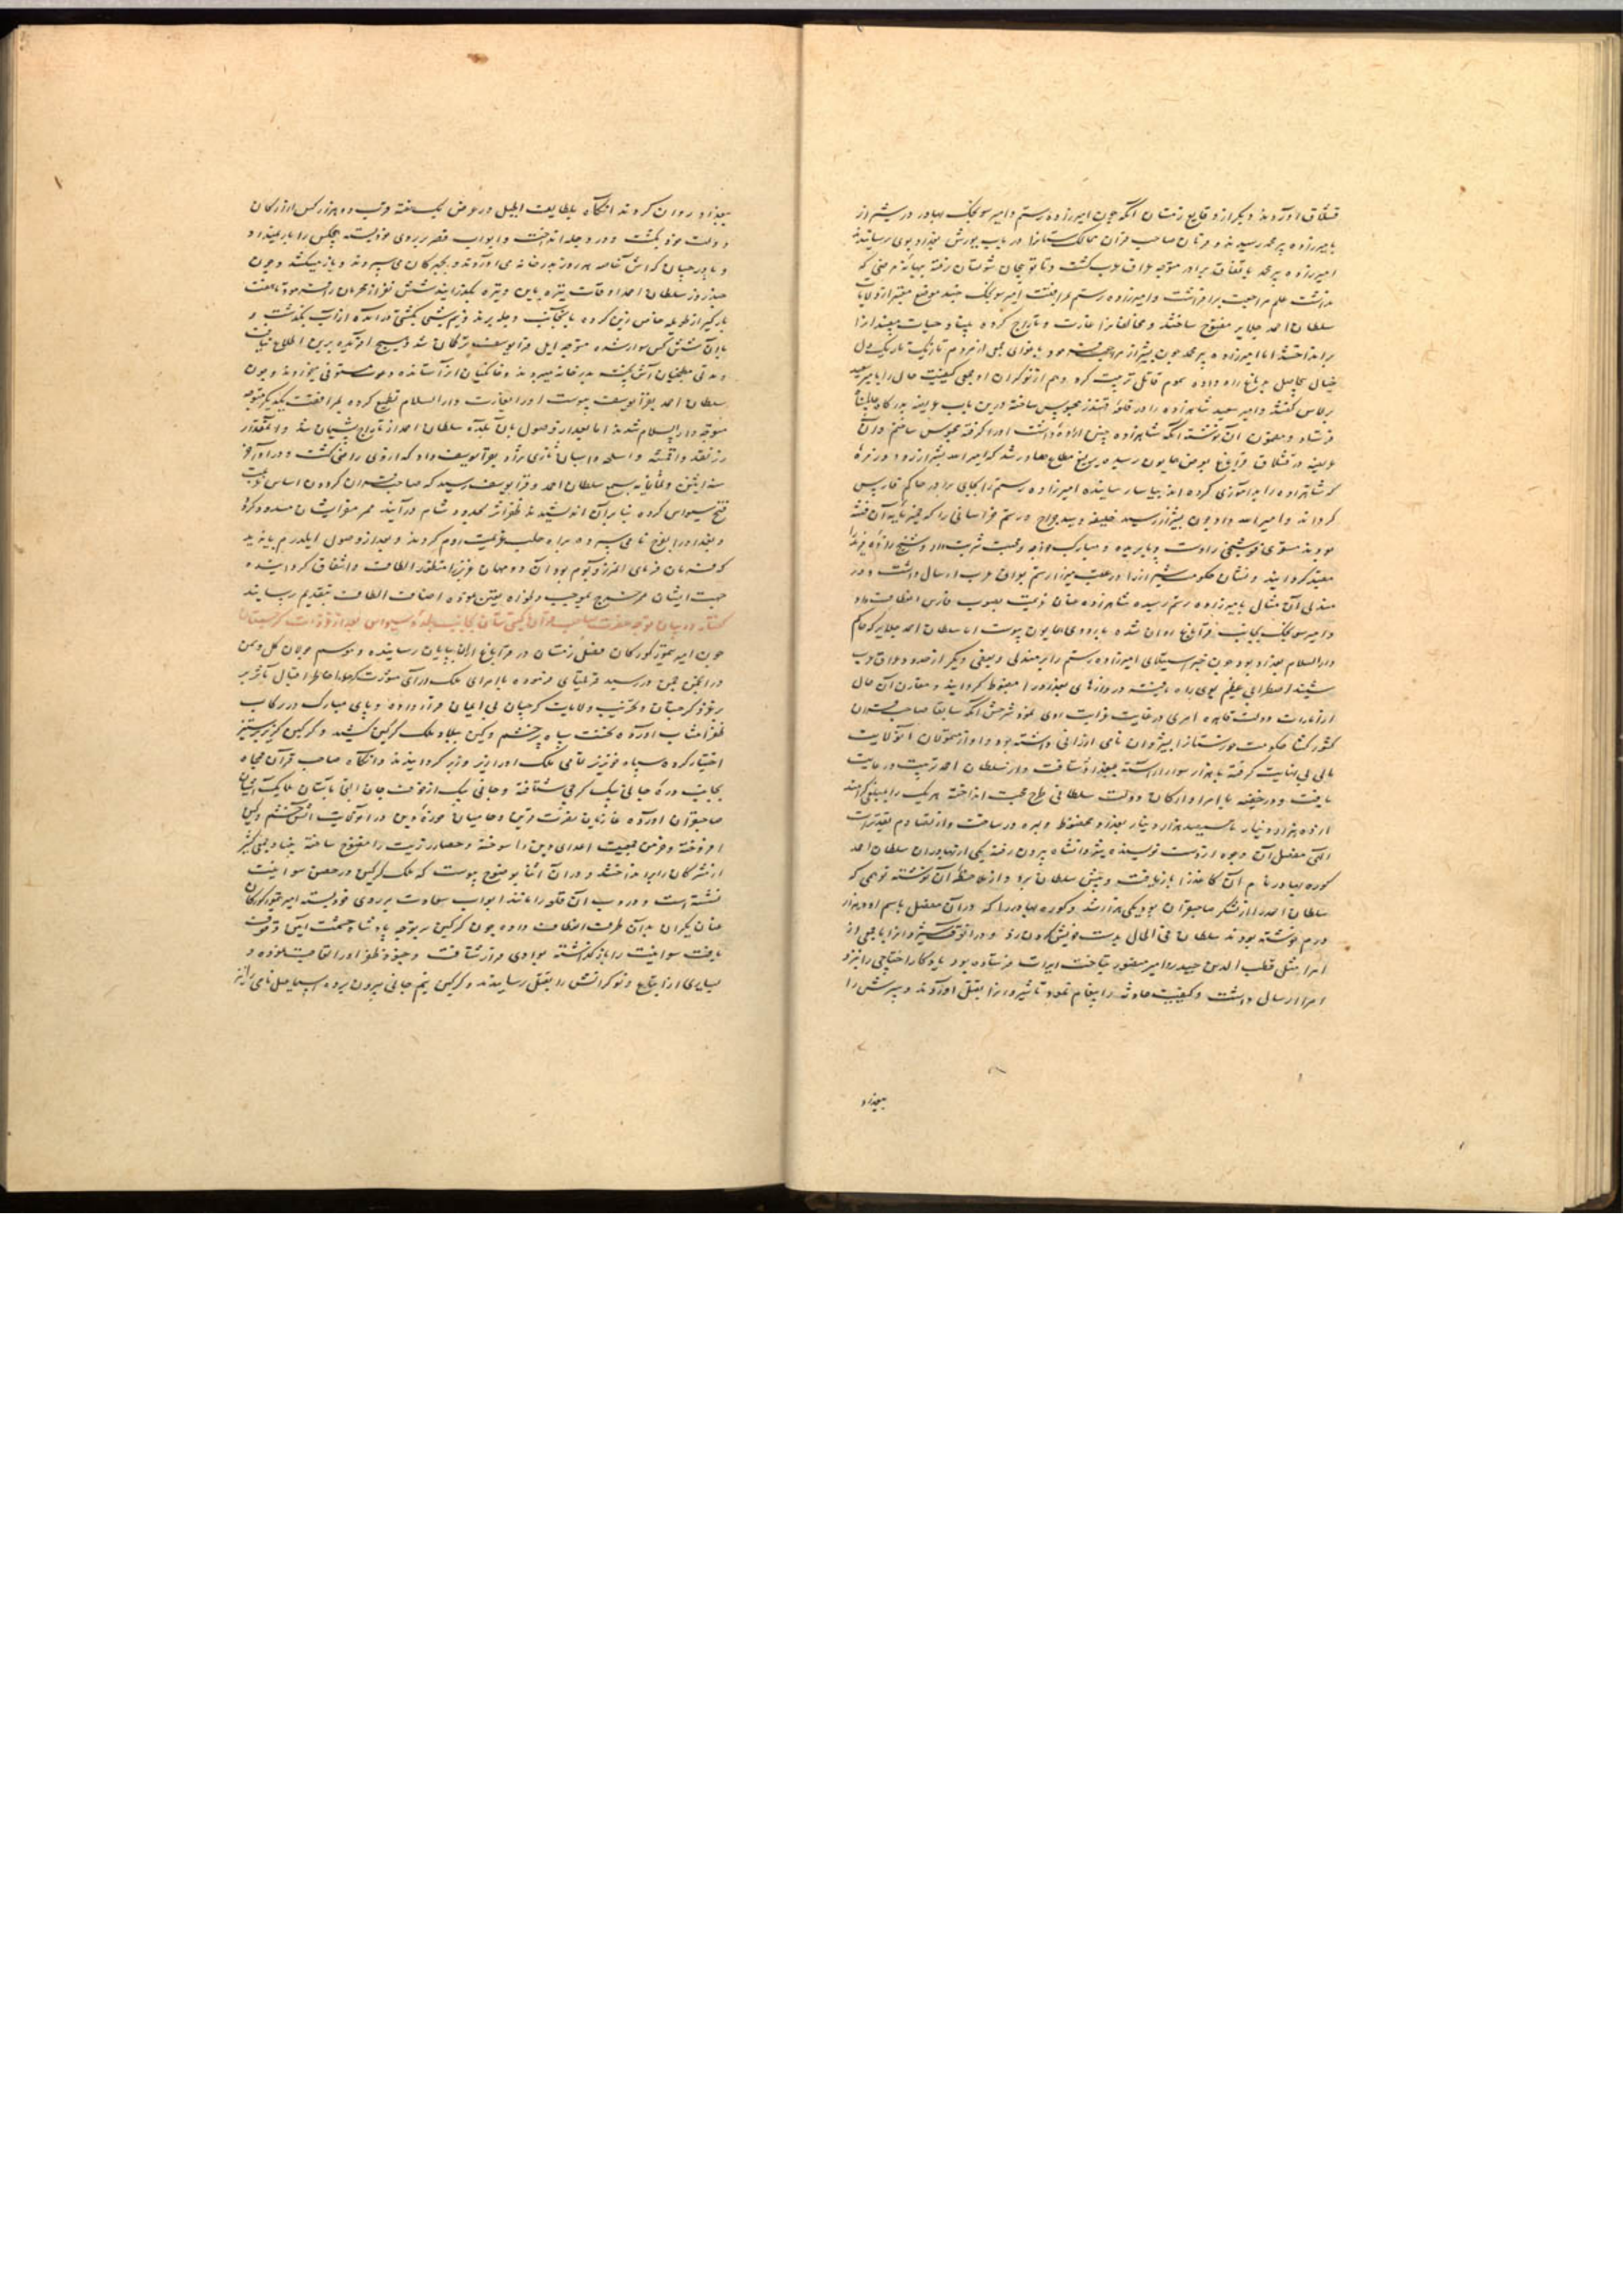 قشلاق آوردند و دیگر از وقایع زمستان آنکه چون امیرزاده رستم و امیر سونجک بهادر در شیراز
بامیرزاده پیر محمد رسیدند و فرمان صاحب قران ممالک ستانرا در باب یورش بغداد بوی رسانیدند
امیرزاده پیر محمد باتفاق برادر متوجه عراق عرب گشت و تا نوبنجان شولستان رفته ببهانه مرضی که
نداشت علم مراجعت برافراشت و امیرزاده رستم بمرافقت امیر سونجک چند موضع معتبر از ولایات
سلطان احمد جلایر مفتوح ساختند و مخالفانرا غارت و تاراج کرده بنیاد حیات مفسدانرا
برانداختند اما امیرزاده پیر محمد چون بشیراز مراجعت نمود باغوای جمعی از مردم تازیک تاریک دل
خیال بیحاصل بدماغ راه داده سموم قاتل ترتیب کرد و هم از نوکران او بعضی کیفیت حال را بامیر سعید
برلاس گفتند و امیر سعید شاهزاده را در قلعه قهندز محبوس ساخته درین باب عریضه بدرگاه عالم پناه
فرستاد و مضمون آن نوشته آنکه شاهزاده چنین اراده داشت او را گرفته محبوس ساختم و آن
عریضه در قشلاق قراباغ بعرض همایون رسیده یرلیغ مطاع صادر شد که امیر الله بشیراز رود و زمره
که شاهزاده را بدآموزی کرده اند بیاسا رسانیده امیرزاده رستم را بجای برادر حاکم فارس
گرداند و امیر الله داد چون بشیراز رسید خلیفه و سید جراح و رستم خراسانی را که خمیرمایه آن فتنه
بودند
مقید گردانید و نشان حکومت شیراز را در عقب میرزا رستم بعراق عرب ارسال داشت و در
مندلی آن مثال بامیرزاده رستم رسیده شاهزاده عنان عزیمت بصوب فارس انعطاف داد
و امیر سونجک بجانب قراباغ روان شده باردوی همایون پیوست اما سلطان احمد جلایر که حاکم
دارالسلام بغداد بود چون خبر استیلای امیرزاده رستم را بر مندلی و بعضی دیگر از حدود عراق عرب
شنید اضطرابی عظیم بوی راه یافته دروازهای بغداد را مضبوط گردانید و مقارن آن حال
از امارات دولت قاهره امری در غایت غرابت روی نمود شرحش آنکه سابقا صاحب قران
کشورگشا حکومت خوزستانرا بشروان نامی ارزانی داشته بود و او از متمولان آنولایت
مالی بی نهایت گرفته با هزار سوار آراسته ببغداد شتافت و از سلطان احمد تربیت و رعایت
یافت و در خفیه با امرا و ارکان دولت سلطانی طرح محبت انداخته هر یک را بمبلغی گرامند
از ده هزار دینار تا سیصد هزار دینار بغدادی محفوظ و بهره ور ساخت و از
مفصل آن وجوه از دست نویسنده شروانشاه بیرون رفته یکی از بهادران سلطان احمد
کوره بهادر نام آن کاغذ را بازیافت و پیش سلطان برد و از ملاحظه آن نوشته توهمی که
سلطان احمد را از لشکر صاحبقران بود یکی هزار شد و کوره بهادر را که در آن مفصل باسم او ده هزار
درم نوشته بودند سلطان فی الحال بدست خویش گردن زد و در آنوقت شروانرا با جمعی از
امرا مثل قطب الدین حیدر و امیر منصور بتاخت ایرات فرستاده بود یادگار اختاچی را بنزد
امرا ارسال داشت و کیفیت حادثه را پیغام نمود تا شروانرا بقتل آوردند و سرش را
ببغداد
ببغداد روان کردند آنگاه بلطایف الحیل در عرض یک هفته قریب ده هزار کس از ارکان
دولت خود بکشت و در دجله انداخت و ابواب قصر بر روی خود بسته هیچکس را بار نمیداد
و باورچیان که آش آقامه هر روز بدرخانه می آوردند و بخبرکان می سپردند و باز میگشتند و چون
چند روز سلطان احمد اوقات تیره باین وتیره بگذرانید شش نفر از محرمان را فرمود تا هفت
بارگیر از طویله خاص زین کرده بآنجانب دجله بردند و نیم شبی بکشتی درآمده از آب بگذشت و
با آن شش کس سوار شده متوجه ایل قرا یوسف ترکمان شد و هیچ آفریده برین اطلاع نیافت
و مدتی مطبخیان آش پخته بدرخانه میبردند
سلطان احمد بقرا یوسف پیوست او را بغارت دارالسلام تطمیع کرده بمرافقت یکدیگر متوجه
متوجه دارالسلام شدند اما بعد از وصول بآن بلده سلطان احمد از تاراج پشیمان شد و آنمقدار
زر نقد و اقمشه و اسلحه و اسبان تازی نژاد بقرا یوسف داد که اردوی راضی گشت و در آخر
سنه اثنی و ثمانمایه بسمع سلطان احمد و قرا یوسف رسید که صاحب قران گردون اساس عزیمت
فتح سیواس کرده بنابر آن اندیشیدند ظفر اثر بحدود شام درآیند ممر مفر ایشان مسدود گردد
و بغداد را بفرخ نامی سپرده براه حلب عزیمت روم کردند و بعد از وصول ایلدرم بایزید
که فرمان فرمای المرز و بوم بود آن دو مهمان عزیز را منظور الطاف و اشفاق گردانیده
جهت ایشان مرسوم بموجب دلخواه تعیین نموده اصناف الطاف بتقدیم رسانید
گفتار در بیان توجه حضرت صاحب قران گیتی ستان بجانب بلده سیواس بعد از غزوات گرجستان
چون امیر تیمور گورکان فصل زمستان در قراباغ اران بپایان رسانیده و موسم جولان گل و سمن
در انجمن چمن در رسید قریلتای فرموده باامرای ملک آرای مشورت کرد
بر غزو گرجستان و تخریب ولایات گرجیان بی ایمان قرار داده و پای مبارک در رکاب
ظفر انتساب آورده نخست سپاه پر خشم و کین ببلاد ملک گرگین کشید و گرگین گریز بر ستیز
اختیار کرده سپاه فیروز تمامی ملک او را زیر و زبر گردانیدند و آنگاه صاحب قران مجاهد
بجانب دره جانی بیک گرجی شتافته و جانی بیک از خوف جان
صاحبقران آورده غازیان نصرت قرین و حامیان حوزه دین در آنولایت آتش خشم و کین
افروخته و خرمن جمعیت اعدای دین را سوخته و حصار زریت را مفتوح ساخته بنیاد جمعی کثیر
از مشرکان را برانداختند و در آن اثنا بوضوح پیوست که ملک گرگین در حصن سوانیت
نشسته است و در و ب آن قلعه را مانند ابواب سعادت بر روی خود بسته امیر تیمور گورکان
عنان یکران بدان طرف انعطاف داده چون گرگین بر توجه پادشاه حشمت آیین وقوف
یافت سوانیت را باز گذاشته بوادی فرار شتافت و جنود ظفر اثر او را تعاقب نموده و
بسیاری از اتباع و نوکرانش را بقتل رسانیدند و گرگین نیم جانی بیرون برده اسماعیل نامی را نزد